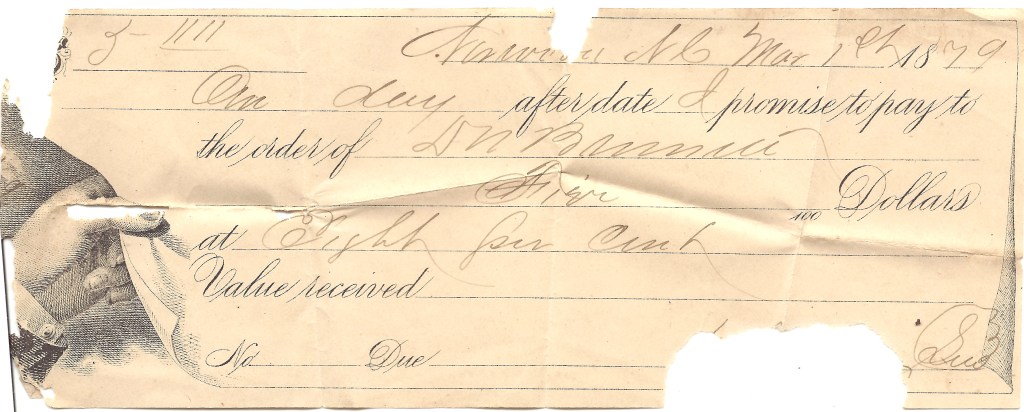 5 1111 N C Mar 1st 1879
One day after date I promise to pay to
the order of D N Bennett
Five /100 Dollars
at Eight per cent
Value received
No Due